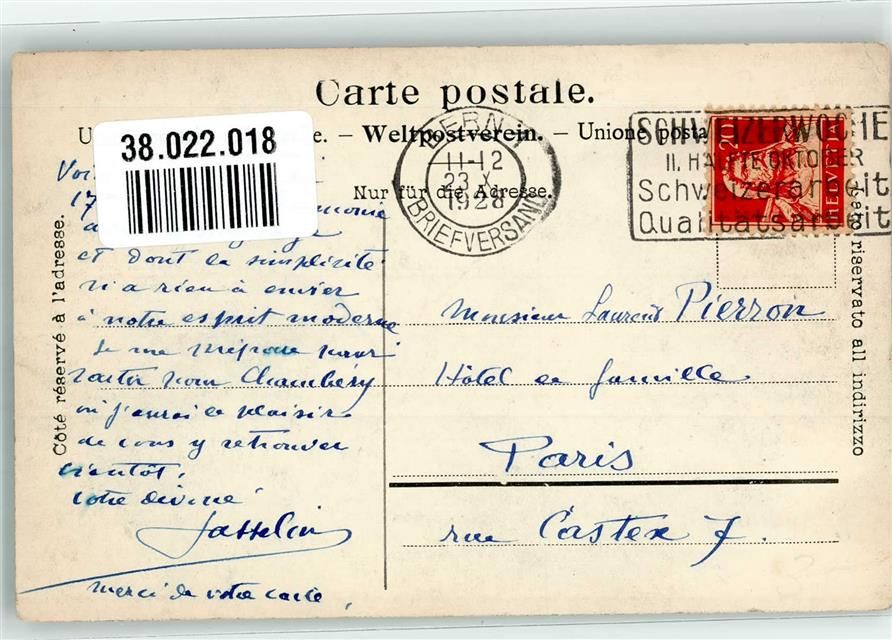 Carte postale.
e. – Weltpostverein. – Unione posta
Nur für die Adresse.
38.022.018
BERN 1
11-12
23 X
1928
BRIEFVERSAND
SCHWEIZERWOCHE
II. HÄLFTE OKTOBER
Schweizerarbeit
Qualitätsarbeit
20
HELVETIA
Côté réservé à l'adresse.
riservato all indirizzo
17
et dont la simplicité
n'a rien à envier
à notre esprit moderne
Je me prépare pour
partir pour Chambéry
où j'aurai le plaisir
de vous y retrouver
bientôt,
votre
Josselin
merci de votre carte,
Monsieur Laurent Pierron
Hôtel de famille
Paris
rue Castex 7.